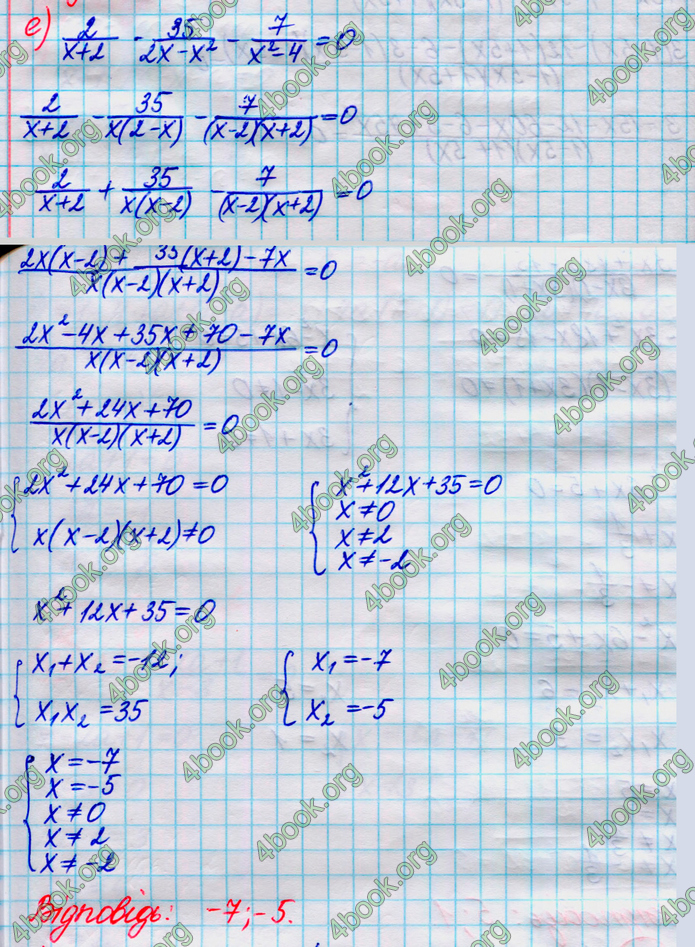 е) 2/(x+2) - 35/(2x-x²) - 7/(x²-4) = 0
2/(x+2) - 35/(x(2-x)) - 7/((x-2)(x+2)) = 0
2/(x+2) + 35/(x(x-2)) - 7/((x-2)(x+2)) = 0
(2x(x-2) + 35(x+2) - 7x)/(x(x-2)(x+2)) = 0
(2x²-4x+35x+70-7x)/(x(x-2)(x+2)) = 0
(2x²+24x+70)/(x(x-2)(x+2)) = 0
{ 2x²+24x+70=0
x(x-2)(x+2)≠0
{ x²+12x+35=0
x≠0
x≠2
x≠-2
x²+12x+35=0
{ x₁+x₂=-12;
x₁x₂=35
{ x₁=-7
x₂=-5
{ x=-7
x=-5
x≠0
x≠2
x≠-2
Відповідь: -7;-5.
4book.org